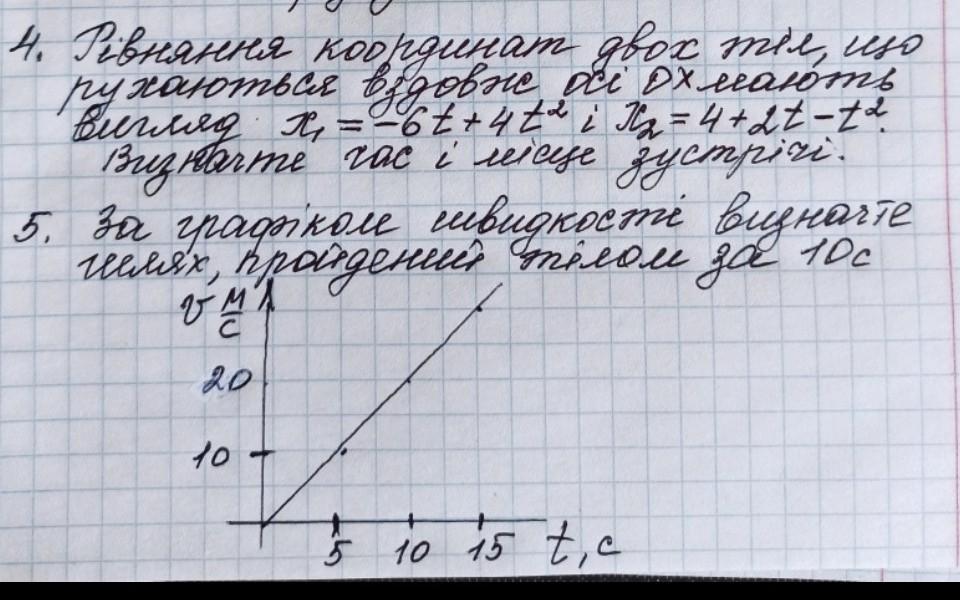 4. Рівняння координат двох тіл, що
рухаються вздовж осі OX мають
вигляд x₁ = -6t + 4t² і x₂ = 4 + 2t - t².
Визначте час і місце зустрічі.
5. За графіком швидкості визначте
шлях, пройдений тілом за 10с
v м/с
20
10
5 10 15 t, с